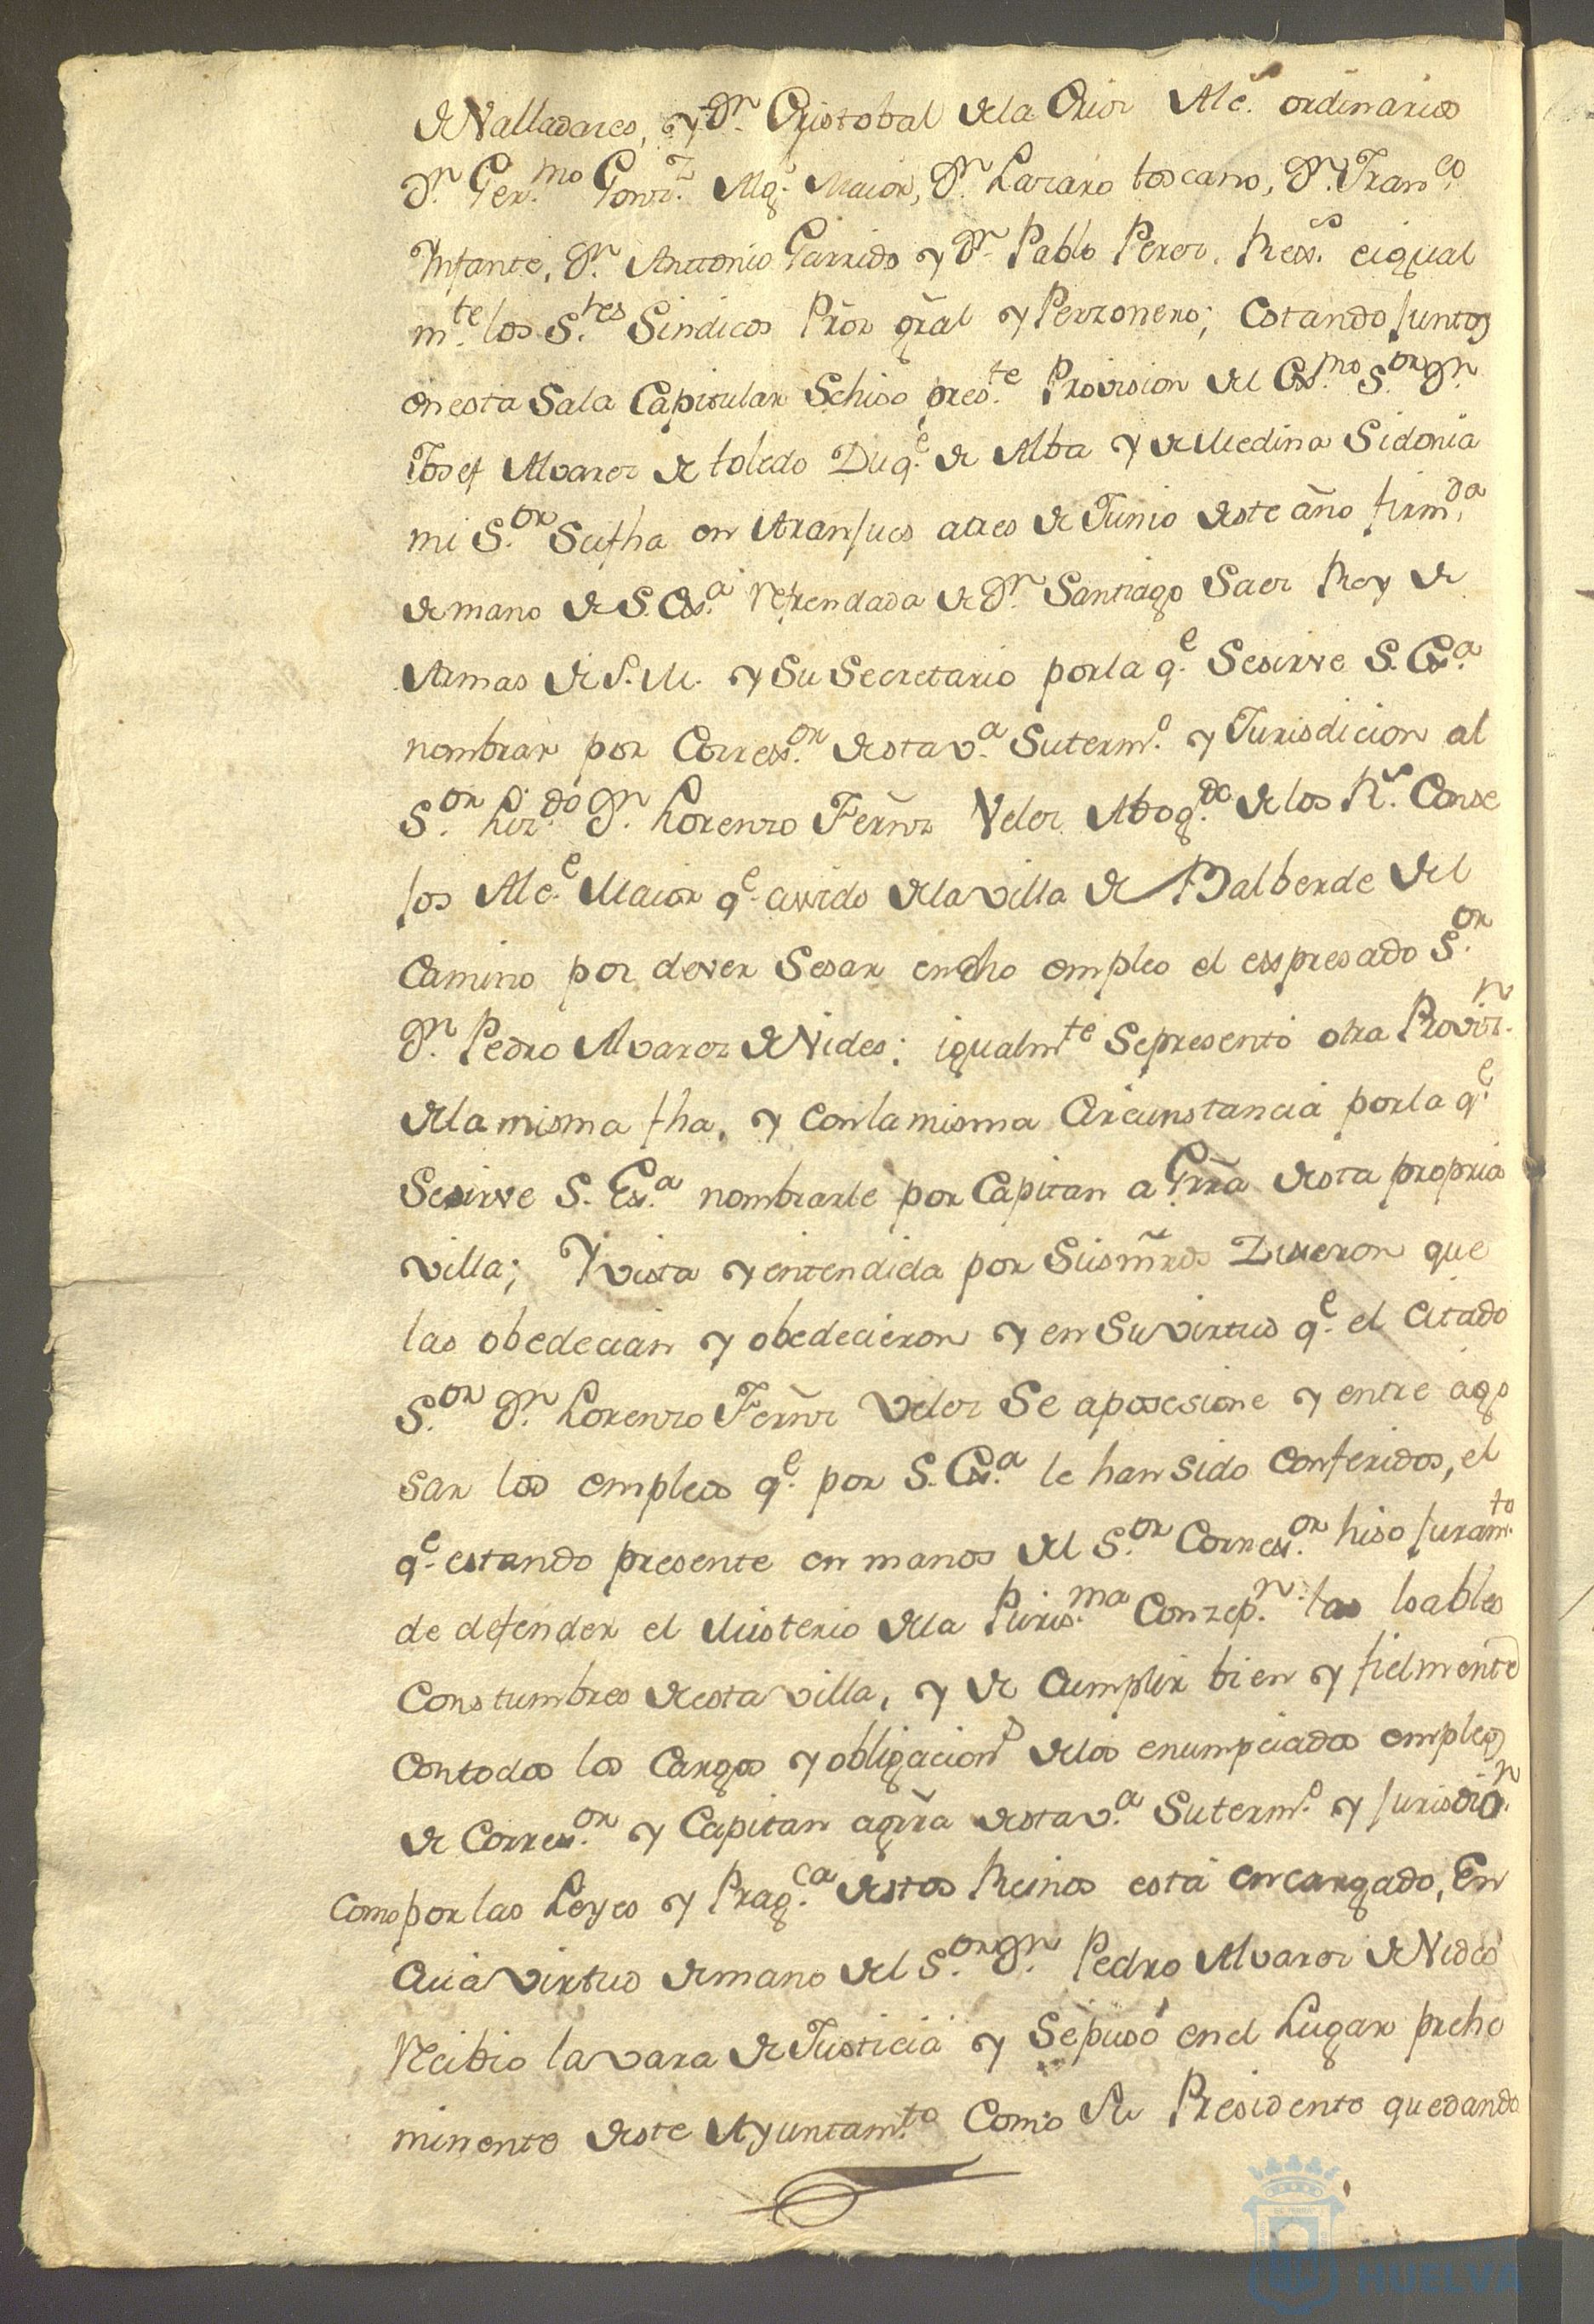 de Valladares, y Dn. Cristobal dela Cruz Alce. ordinarios
Dn. Germo. Gonz. Alg. Maior, Dn. Lazaro toscano, Dn. Franco.
Ynfante, Dn. Antonio Garrido y Dn. Pablo Perez, Ress. eigual
mte. los Stes. Sindicos Prõr grãl y Perzonero; estando juntos
en esta Sala Capitular Sehiso preste. Provision del Exmo. Sor. Dn.
Josef Alvarez de toledo Duqe. de Alba y de Medina Sidonia
mi Sor. Sufha en Aranjues atres de Junio deste año firmda.
de mano de S. Exa. Refrendada de Dn. Santiago Saez Rey de
Armas de S. M. y Su Secretario porla qe. Sesirve S. Exa.
nombrar por Correxor. destava. Sutermo. y Jurisdicion al
Sor. Lizdo. Dn. Lorenzo Fernz Velez Abogdo. delos Rs. Conse
jos Alce. Maior qe. asido dela villa de Balberde del
Camino por dever Sesar en dho empleo el esspresado Sor.
Dn. Pedro Alvarez de Nides; igualmte Sepresentó otra Provizn.
dela misma fha, y conla misma Circunstancia porla qe.
Sesirve S. Exa. nombrarle por Capitan a Grrã desta propria
villa; Y vista y entendida por Susmrds Dixeron que
las obedecian y obedecieron y en Su virtud qe. el citado
Sor. Dn. Lorenzo Fernz Velez Se aposesione y entre ágo
sar los empleos qe. por S. Exa. le han sido conferidos, el
qe. estando presente en manos del Sor. Correxor. hiso juramto.
de defender el Misterio dela Purisma. Conzepn. las loables
Constumbres desta villa, y de Cumplir bien y fielmente
Contodos los Cargos y obligacions delos enumpciados empleos
de Correxor. y Capitan agrrã destava. Sutermo. y jurisdin.
Como por las Leyes y Pragca. destos Reinos está encargado, En
Cuia virtud de mano del Sor. Dn. Pedro Alvarez de Nides
Recibio la vara de Justicia y Sepusó en el Lugar prehe
minente deste Ayuntamto. Como Su Presidente quedando
HUELVA